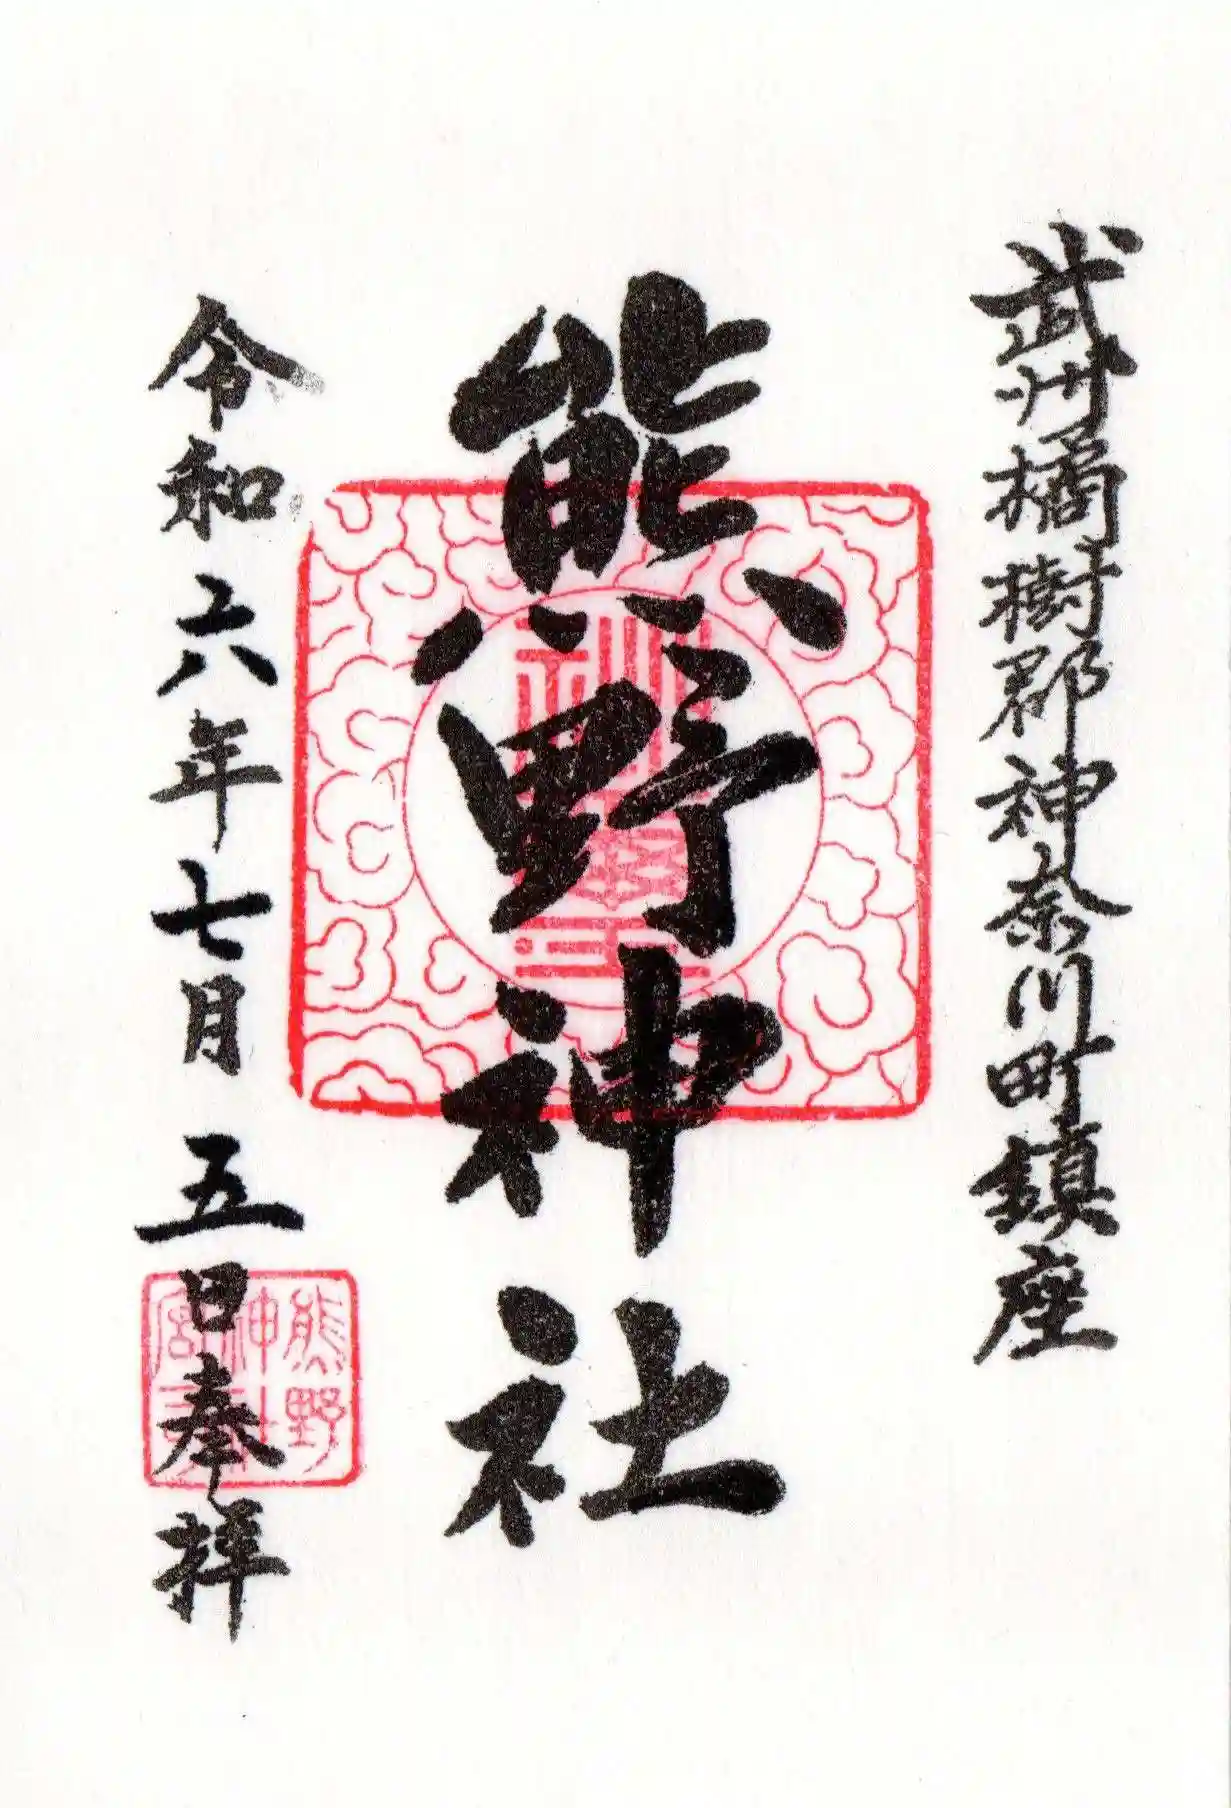 武州橘樹郡神奈川町鎮座
熊野神社
令和六年七月五日奉拝
熊野
神社